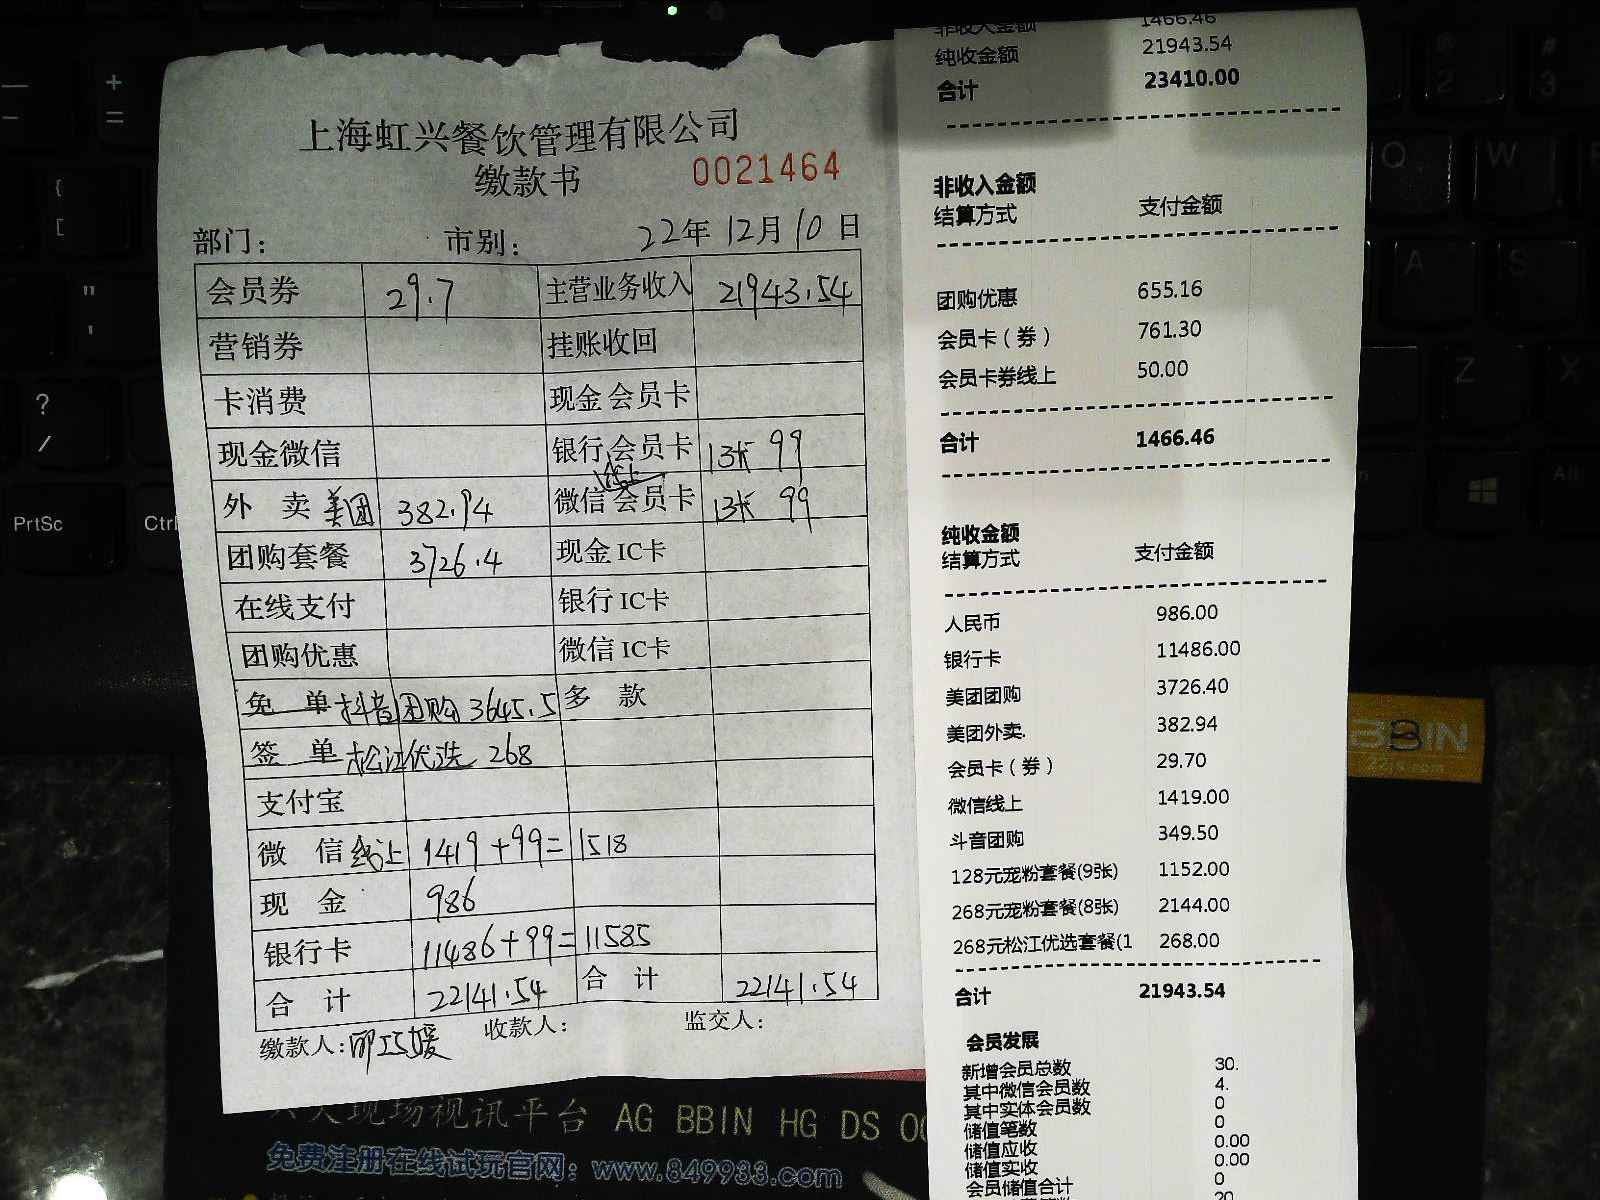 上海虹兴餐饮管理有限公司
缴款书 0021464
部门： 市别： 22年 12月 10日
会员券 29.7 主营业务收入 21943.54
营销券 挂账收回
卡消费 现金会员卡
现金微信 银行会员卡 13张 99
线上
外 卖 美团 382.94 微信会员卡 13张 99
团购套餐 3726.4 现金IC卡
在线支付 银行IC卡
团购优惠 微信IC卡
免 单 抖音团购 3645.5 多 款
签 单 松江优选 268
支付宝
微 信 线上 1419+99= 1518
现 金 986
银行卡 11486+99= 11585
合 计 22141.54 合 计 22141.54
缴款人： 收款人： 监交人：
非收入金额 1466.46
纯收金额 21943.54
合计 23410.00
非收入金额
结算方式 支付金额
团购优惠 655.16
会员卡（券） 761.30
会员卡券线上 50.00
合计 1466.46
纯收金额
结算方式 支付金额
人民币 986.00
银行卡 11486.00
美团团购 3726.40
美团外卖. 382.94
会员卡（券） 29.70
微信线上 1419.00
斗音团购 349.50
128元宠粉套餐(9张) 1152.00
268元宠粉套餐(8张) 2144.00
268元松江优选套餐(1 268.00
合计 21943.54
会员发展
新增会员总数 30.
其中微信会员数 4.
其中实体会员数 0
储值笔数 0
储值应收 0.00
储值实收 0.00
会员储值合计 0
20
现场视讯平台 AG BBIN HG DS
免费注册在线试玩官网：www.849933.com
BBIN
PrtSc
Ctrl
Alt
Q
W
A
S
Z
X